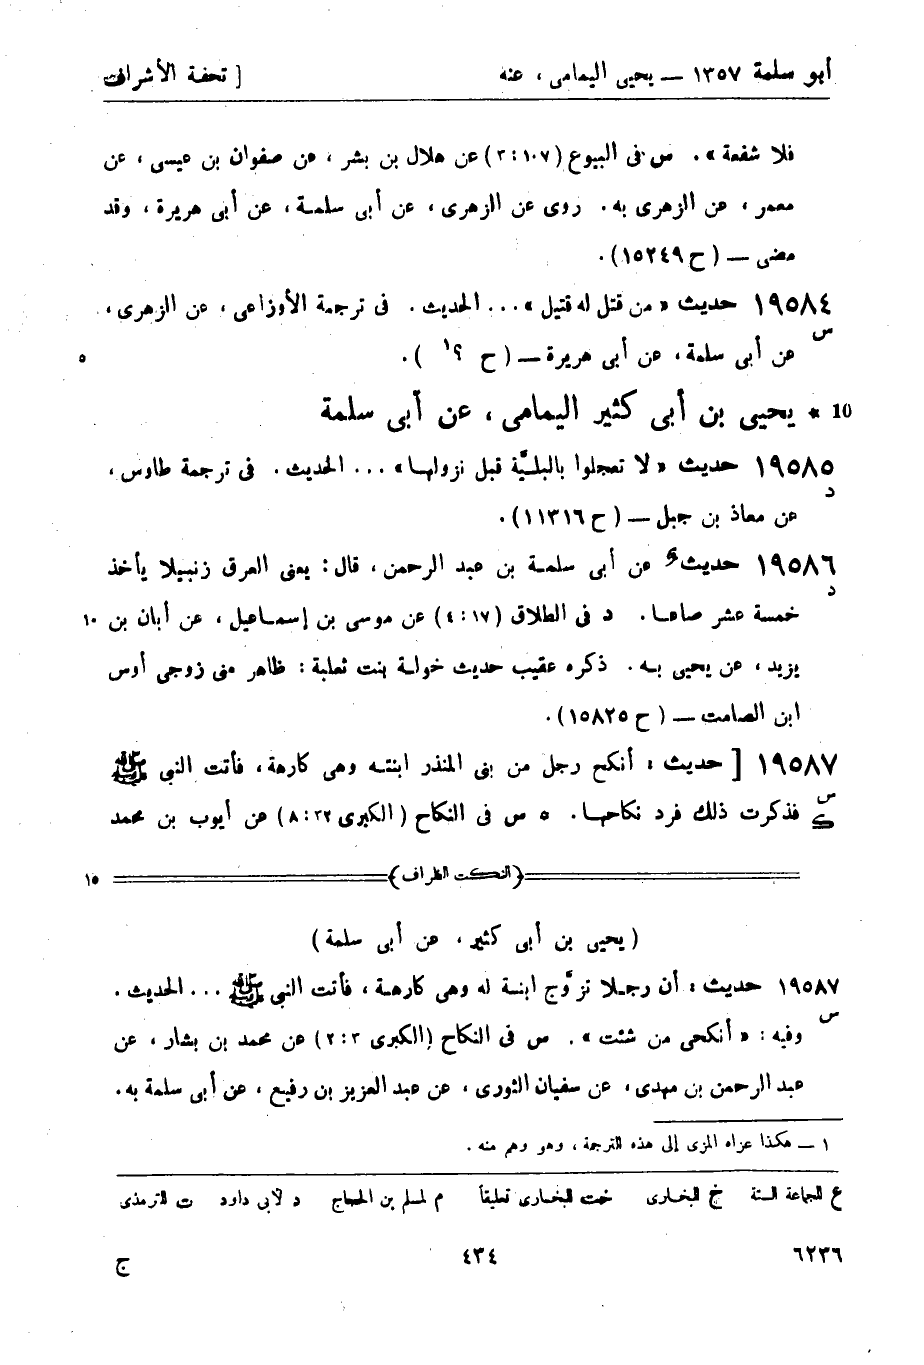 أبو سلمة ١٣٥٧ — يحيى اليمامى ، عنه [ تحفة الأشراف
فلا شفعة » . س فى البيوع (١٠٧ : ٣) عن هلال بن بشر ، عن صفوان بن عيسى ، عن
معمر ، عن الزهرى به . روى عن الزهرى ، عن أبى سلمة ، عن أبى هريرة ، وقد
مضى — ( ح ١٥٢٤٩) .
١٩٥٨٤ حديث « من قتل له قتيل » ... الحديث . فى ترجمة الأوزاعى ، عن الزهرى ،
س
عن أبى سلمة ، عن أبى هريرة — ( ح ؟١ ) . ٥
10 * يحيى بن أبى كثير اليمامى ، عن أبى سلمة
١٩٥٨٥ حديث « لا تعجلوا بالبليَّة قبل نزولها » ... الحديث . فى ترجمة طاوس ،
د
عن معاذ بن جبل — ( ح ١١٣١٦) .
١٩٥٨٦ حديث عن أبى سلمة بن عبد الرحمن ، قال : يعنى العرق زنبيلا يأخذ
د
خمسة عشر صاعا . د فى الطلاق (١٧ : ٤) عن موسى بن إسماعيل ، عن أبان بن ١٠
يزيد ، عن يحيى به . ذكره عقيب حديث خولة بنت ثعلبة : ظاهر منى زوجى أوس
ابن الصامت — ( ح ١٥٨٢٥) .
١٩٥٨٧ [ حديث : أنكح رجل من بنى المنذر ابنته وهى كارهة ، فأتت النبى ﷺ
س
فذكرت ذلك فرد نكاحها . ٥ س فى النكاح ( الكبرى ٣٢ : ٨) عن أيوب بن محمد
ك
(النكت الظراف) ١٥
( يحيى بن أبى كثير ، عن أبى سلمة )
١٩٥٨٧ حديث : أن رجلا تزوَّج ابنة له وهى كارهة ، فأتت النبى ﷺ ... الحديث .
س
وفيه : « أنكحى من شئت » . س فى النكاح (الكبرى ٣ : ٢) عن محمد بن بشار ، عن
عبد الرحمن بن مهدى ، عن سفيان الثورى ، عن عبد العزيز بن رفيع ، عن أبى سلمة به .
١ — هكذا عزاه المزى إلى هذه الترجمة ، وهو وهم منه .
ع للجماعة الستة خ للبخارى خت للبخارى تعليقاً م لمسلم بن الحجاج د لأبى داود ت للترمذى
٦٢٣٦ ٤٣٤ ج